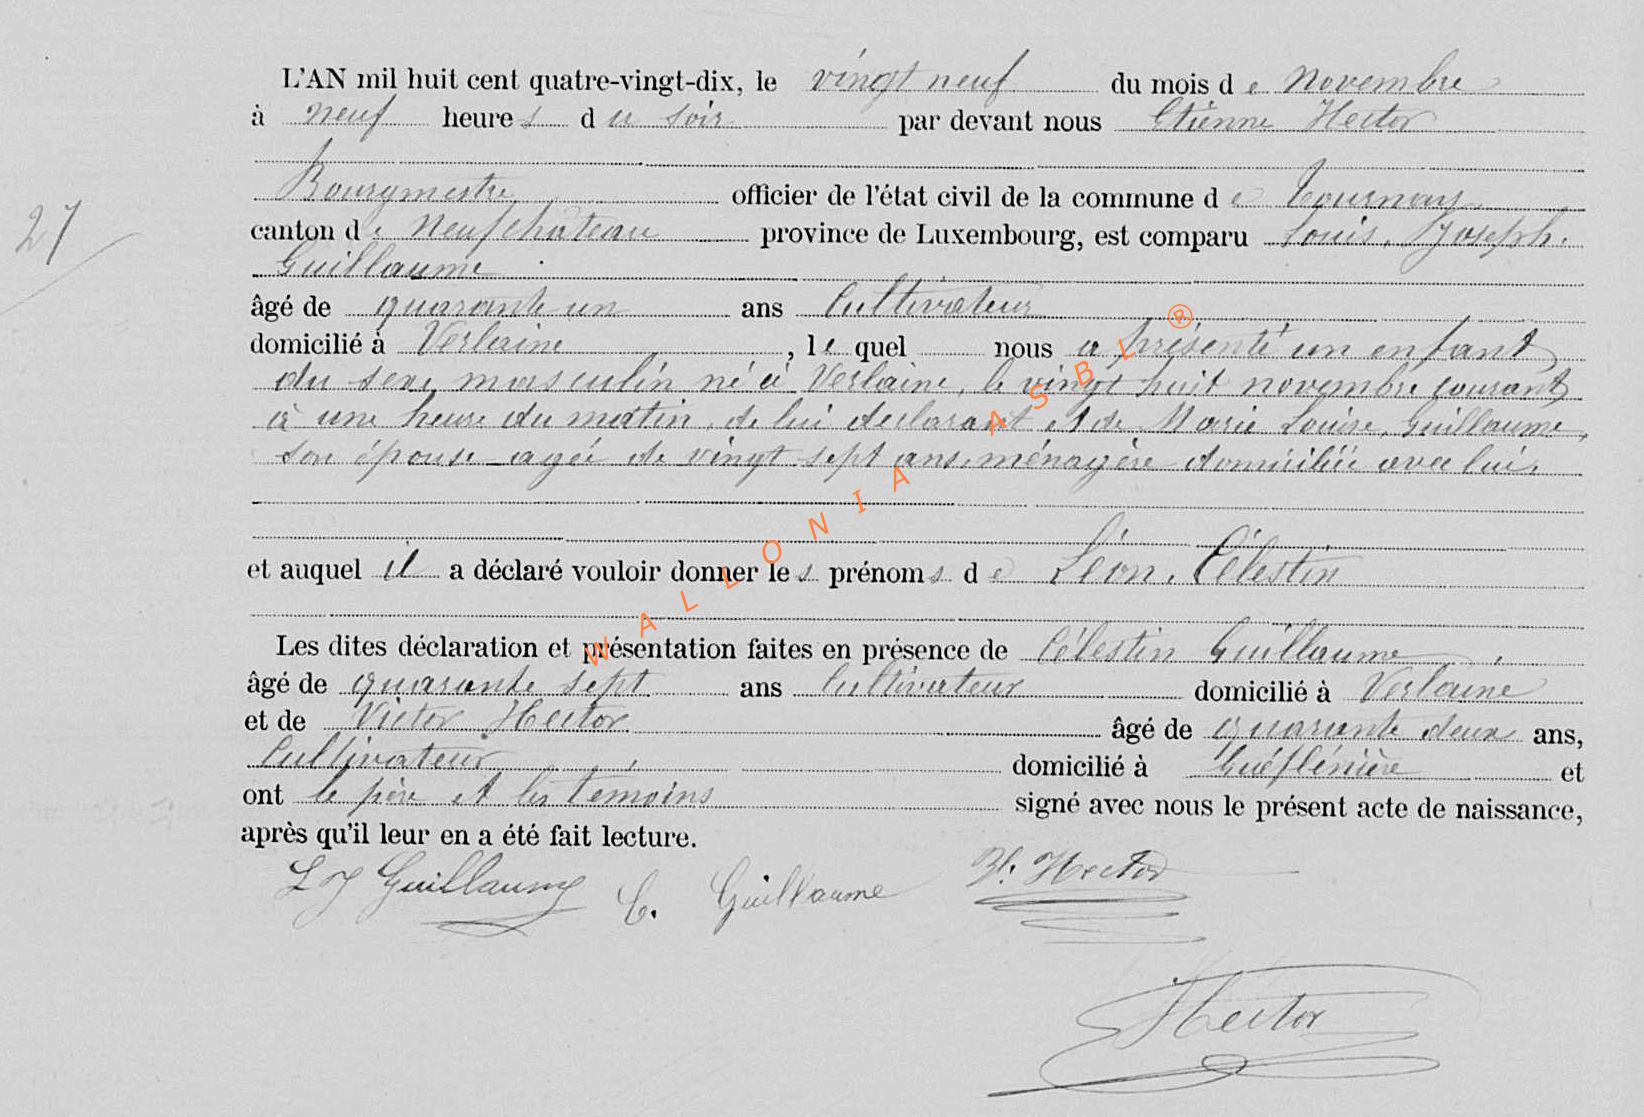 L'AN mil huit cent quatre-vingt-dix, le vingt neuf du mois de Novembre
à neuf heures du soir par devant nous Etienne Hector
Bourgmestre officier de l'état civil de la commune de Tournay
27
canton de Neufchâteau province de Luxembourg, est comparu Louis, Joseph.
Guillaume
âgé de quarante un ans Cultivateur
domicilié à Verlaine, le quel nous a présenté un enfant
du sexe masculin né à Verlaine, le vingt huit novembre courant
à une heure du matin, de lui déclarant et de Marie Louise, Guillaume,
son épouse agée de vingt sept ans, ménagère domiciliée avec lui,
et auquel il a déclaré vouloir donner les prénoms de Léon, Célestin
Les dites déclaration et présentation faites en présence de Célestin Guillaume,
âgé de quarante sept ans Cultivateur domicilié à Verlaine
et de Victor Hector âgé de quarante deux ans,
Cultivateur, domicilié à et
ont le père et les témoins signé avec nous le présent acte de naissance,
après qu'il leur en a été fait lecture.
L J Guillaume C. Guillaume Hector
Hector
WALLONIA ASBL ®